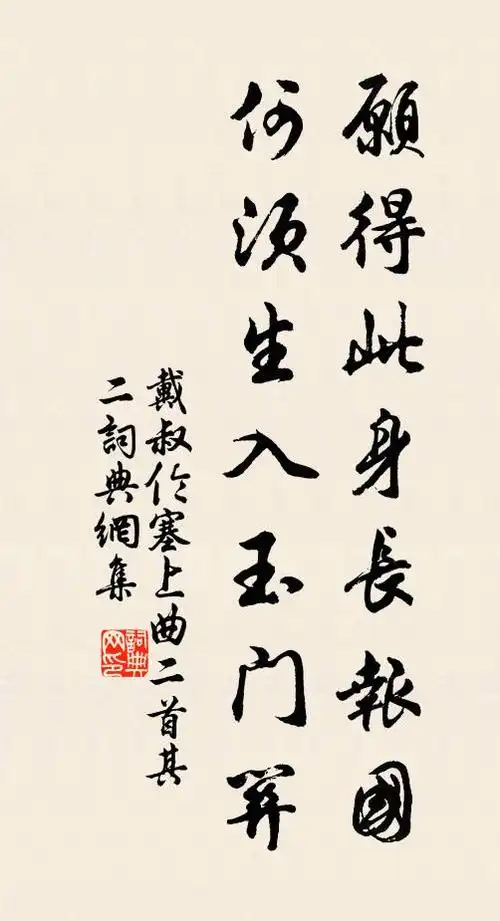 願得此身長報國
何須生入玉门關
戴叔伦塞上曲二首其
二詞典網集
詞典
网印